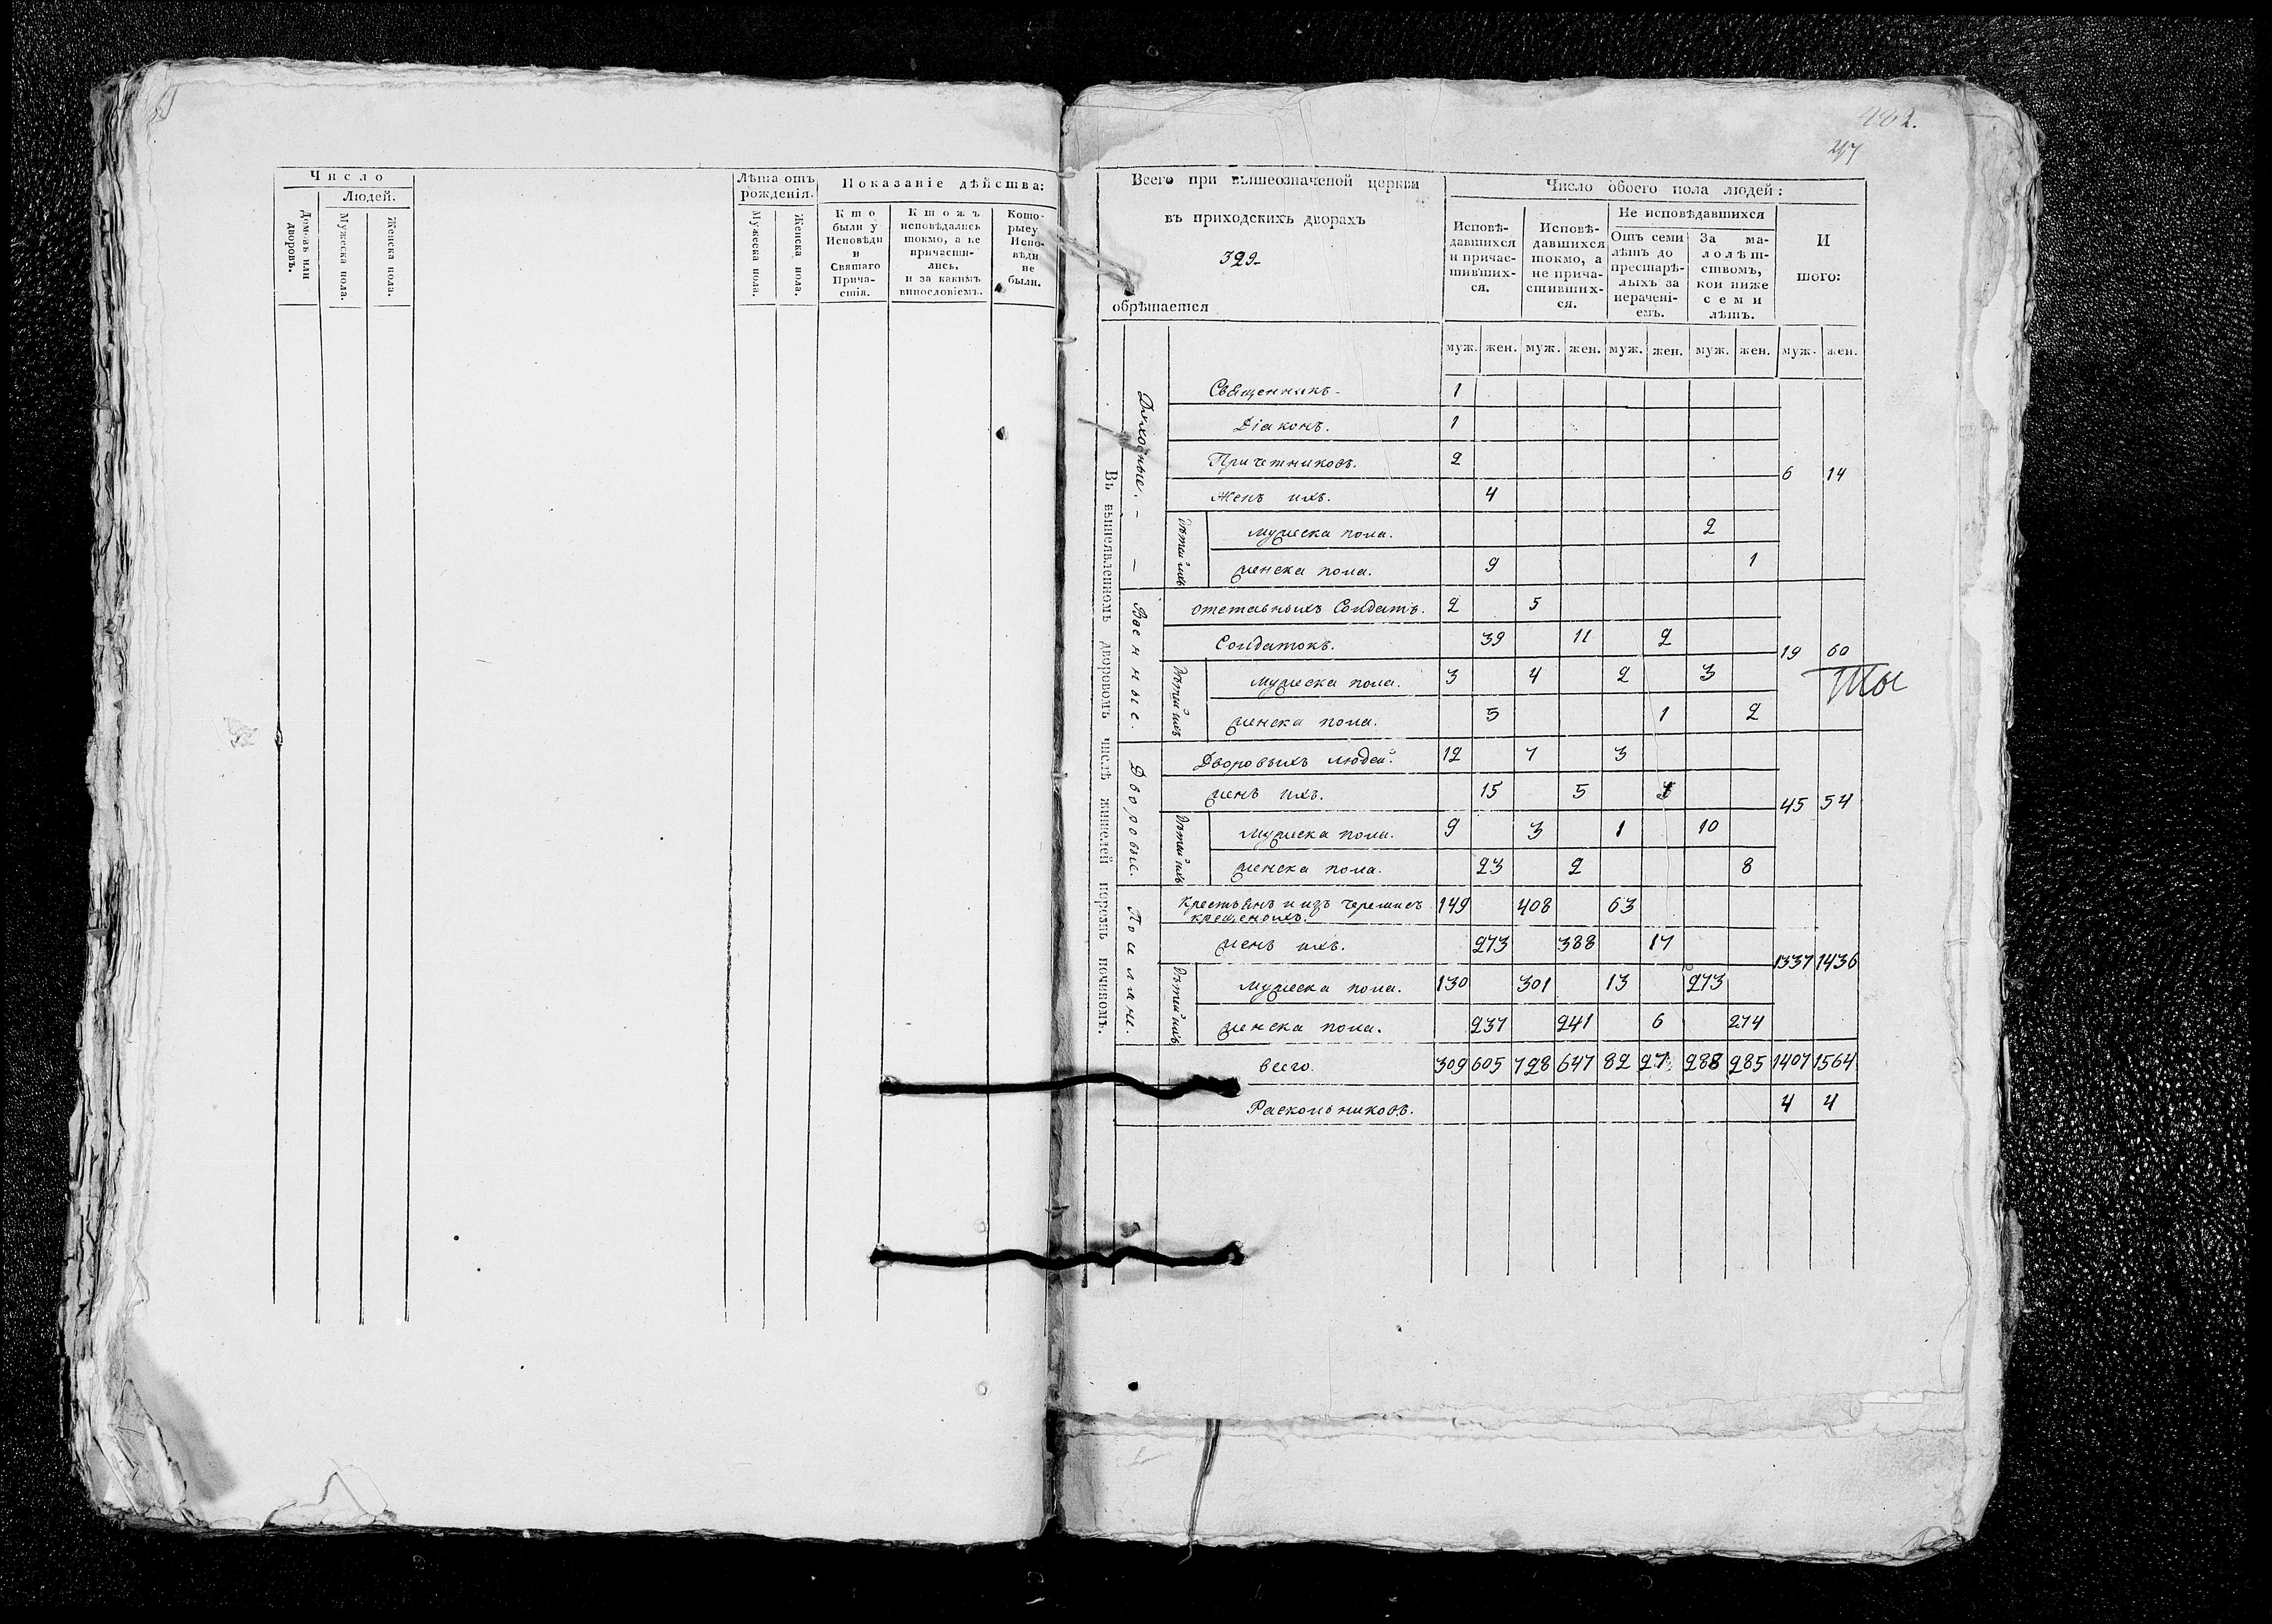 Число
Людей.
Домовъ или дворовъ.
Мужеска пола.
Женска пола.
Лѣта отъ
рожденія.
Мужеска пола.
Женска пола.
Показаніе дѣйства:
Кто
были у
Исповѣди
и
Святаго
Прича-
стія.
Ктожъ
исповѣдались
токмо, а не
причасти-
лись,
и за какимъ
винословіемъ.
Кото-
рыеу
Испо-
вѣди
не
были.
Всего при вышеозначеной церкви
въ приходскихъ дворахъ
329
обрѣтается
Число обоего пола людей:
Исповѣ-
давшихся
и причас-
тивших-
ся.
Исповѣ-
давшихся
токмо, а
не прича-
стивших-
ся.
Не исповѣдавшихся
Отъ семи
лѣтъ до
престарѣ-
лыхъ за
нерачені-
емъ.
За ма-
лолѣт-
ствомъ,
кои ниже
семи
лѣтъ.
И
того:
муж. жен. муж. жен. муж. жен. муж. жен. муж. жен.
Въ вышеявленномъ дворовомъ числѣ жителей порознь почином.
Духовные. - -
Священникъ - 1
Діаконъ. 1
Причетниковъ. 2
6 14
Женъ ихъ. 4
Дѣтей ихъ
мужеска пола. 2
женска пола. 9 1
Военные.
отставныхъ Солдатъ. 2 5
Солдатокъ. 39 11 2
19 60
Дѣтей ихъ
мужеска пола. 3 4 2 3
женска пола. 5 1 2
Дворовые.
Дворовыхъ людей. 12 7 3
женъ ихъ. 15 5 1
45 54
Дѣтей ихъ
Мужеска пола. 9 3 1 10
женска пола. 23 2 8
Поселяне.
Крестьянъ и изъ черемисъ 149 408 63
крещеныхъ.
женъ ихъ. 273 388 17
1337 1436
Дѣтей ихъ
мужеска пола. 130 301 13 273
женска пола. 237 241 6 274
всего. 309 605 728 647 82 27 288 285 1407 1564
Раскольниковъ. 4 4